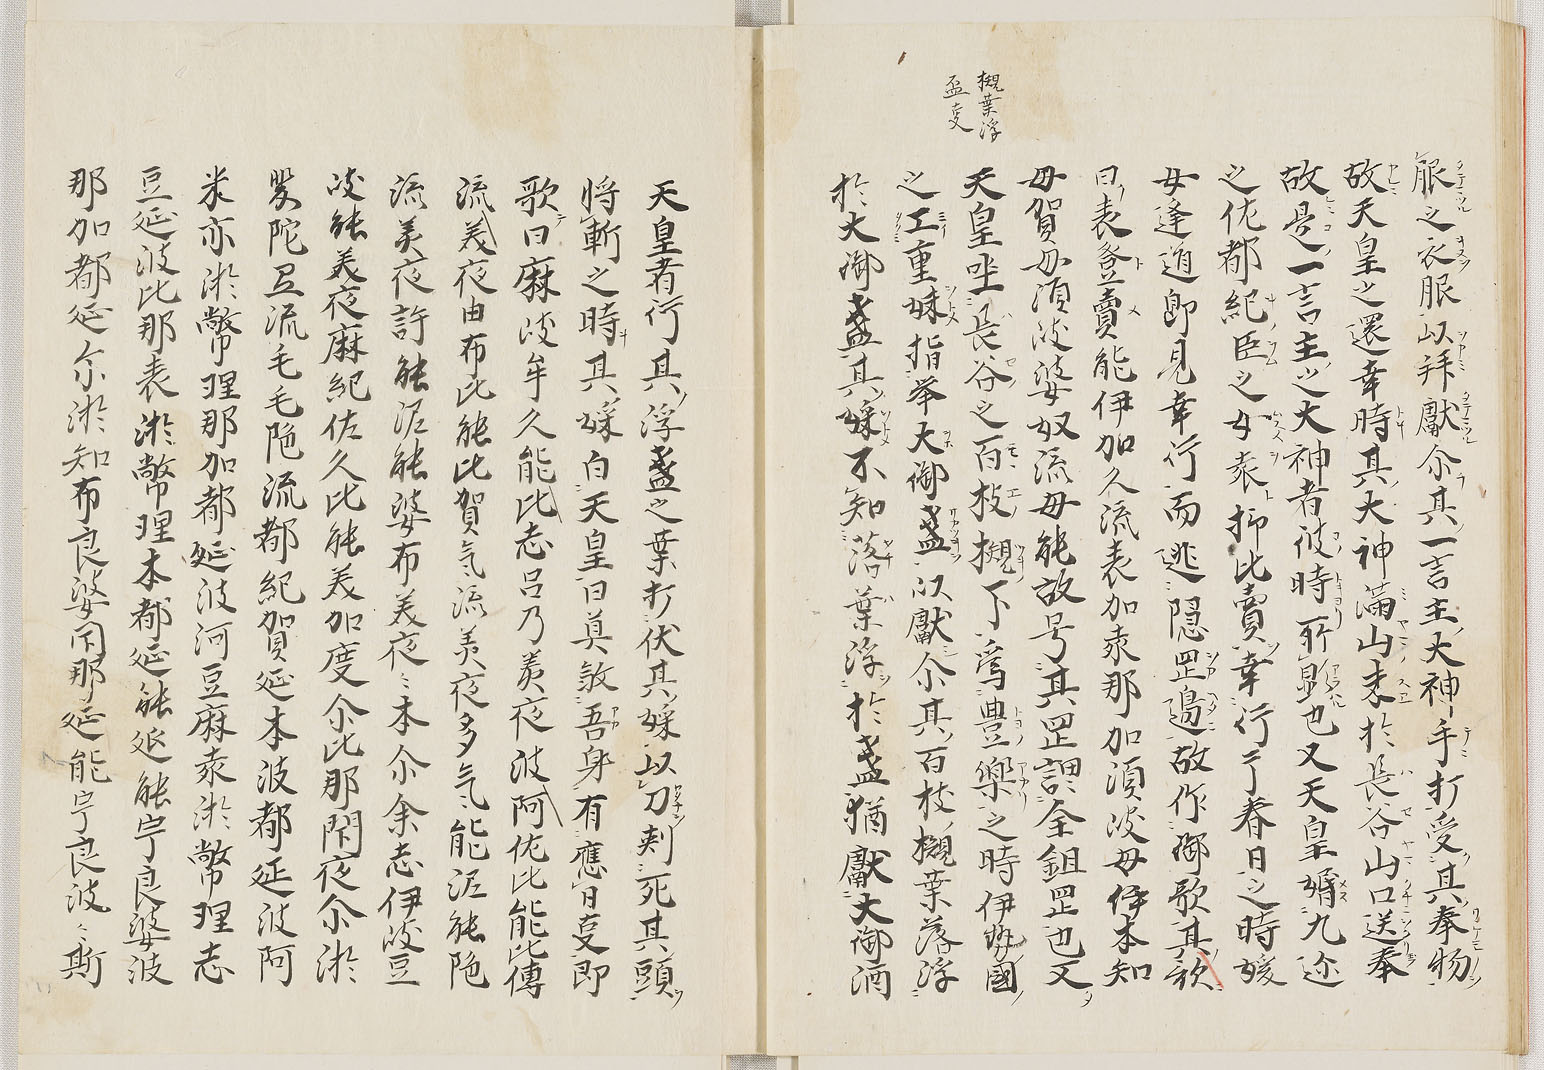 槻葉浮
盃支
服之衣服以拝献尒其一言主大神手打受其奉物
故天皇之還幸時其大神満山末於長谷山口送奉
故是一言主之大神者彼時所顕也又天皇婚丸迩
之佐都紀臣之女袁抒比賣幸行于春日之時媛
女逢道即見幸行而逃隠罡邉故作御歌其歌
曰袁登賣能伊加久流袁加袁那加須岐母伊本知
母賀母須岐婆奴流母能故号其罡謂金鉏罡也又
天皇坐長谷之百枝槻下為豊樂之時伊勢國
之工重婇指挙大御盞以献尒其百枝槻葉落浮
於大御盞其婇不知落葉浮於盞猶献大御酒
天皇看行其浮盞之葉打伏其婇以刀刾死其頭
将斬之時其婇白天皇曰莫敘吾身有應白支即
歌曰麻岐牟久能比志呂乃美夜波阿佐比能比傳
流美夜由布比能比賀気流美夜多気能泥能陁
流美夜許能泥能婆布美夜々本尒余志伊岐豆
岐能美夜麻紀佐久比能美加度尒比那閇夜尒淤
斐陀弖流毛毛陁流都紀賀延本波都延波阿
米亦淤幣理那加都延波阿豆麻袁淤幣理志
豆延波比那袁淤幣理本都延能延能宇良婆波
那加都延尒淤知布良婆閇那延能宇良波々斯